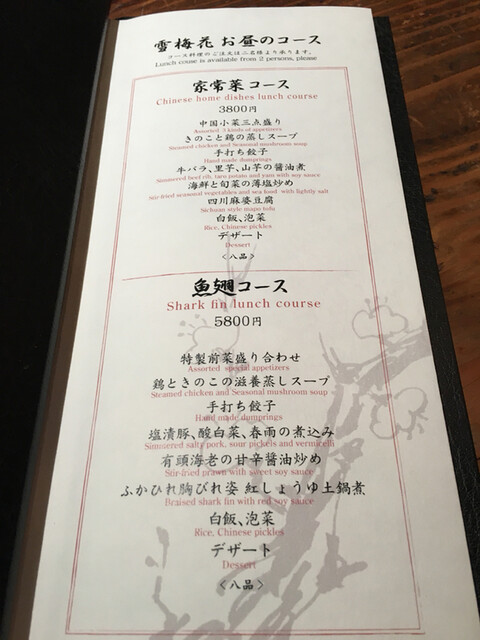 雪梅花 お昼のコース
コース料理のご注文は二名様より承ります。
Lunch couse is available from 2 persons, please
家常菜コース
Chinese home dishes lunch course
3800円
中国小菜三点盛り
Assorted 3 kinds of appetizers
きのこと鶏の蒸しスープ
Steamed chicken and Seasonal mushroom soup
手打ち餃子
Hand made dumprings
牛バラ、里芋、山芋の醤油煮
Simmered beef rib, taro potato and yam with soy sauce
海鮮と旬菜の薄塩炒め
Stir-fried seasonal vegetables and sea food with lightly salt
四川麻婆豆腐
Sichuan style mapo tofu
白飯、泡菜
Rice, Chinese pickles
デザート
Dessert
〈八品〉
魚翅コース
Shark fin lunch course
5800円
特製前菜盛り合わせ
Assorted special appetizers
鶏ときのこの滋養蒸しスープ
Steamed chicken and Seasonal mushroom soup
手打ち餃子
Hand made dumprings
塩漬豚、酸白菜、春雨の煮込み
Simmered salty pork, sour pickels and vermicelli
有頭海老の甘辛醤油炒め
Stir-fried prawn with sweet soy sauce
ふかひれ胸びれ姿 紅しょうゆ土鍋煮
Braised shark fin with red soy sauce
白飯、泡菜
Rice, Chinese pickles
デザート
Dessert
〈八品〉